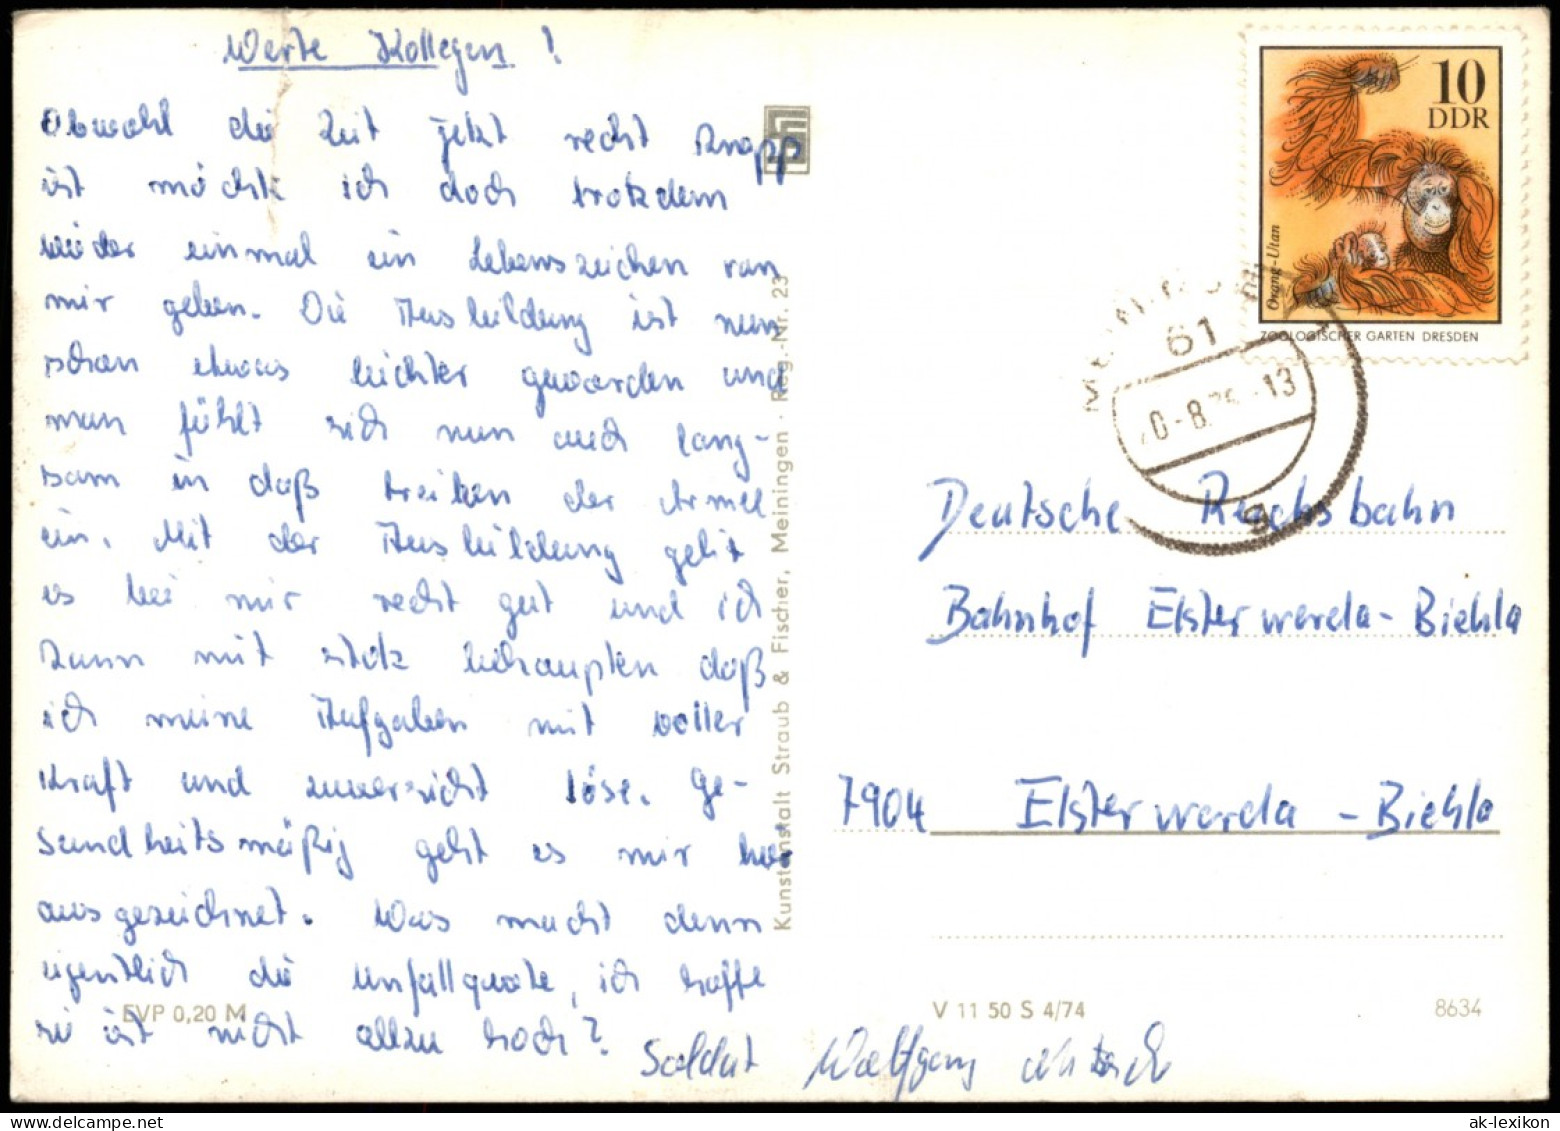 Werte Kollegen!
Obwohl die Zeit jetzt recht knapp
ist möchte ich doch trotzdem
wieder einmal ein Lebenszeichen von
mir geben. Die Ausbildung ist nun
schon etwas leichter geworden und
man fühlt sich nun auch lang-
sam in daß treiben der Armee
ein. Mit der Ausbildung geht
es bei mir recht gut und ich
kann mit stolz behaupten daß
ich meine Aufgaben mit voller
Kraft und zuversicht löse. Ge-
sundheitsmäßig geht es mir
ausgezeichnet. Was macht denn
eigentlich die Unfallquote, ich hoffe
sie ist nicht allzu hoch?
Soldat Wolfgang
EVP 0,20 M
Kunstanstalt Straub & Fischer, Meiningen · Reg.-Nr. 23
10
DDR
Orang-Utan
ZOOLOGISCHER GARTEN DRESDEN
61
-8. -13
g
Deutsche Reichsbahn
Bahnhof Elsterwerda-Biehla
7904 Elsterwerda-Biehla
V 11 50 S 4/74
8634
ak-lexikon